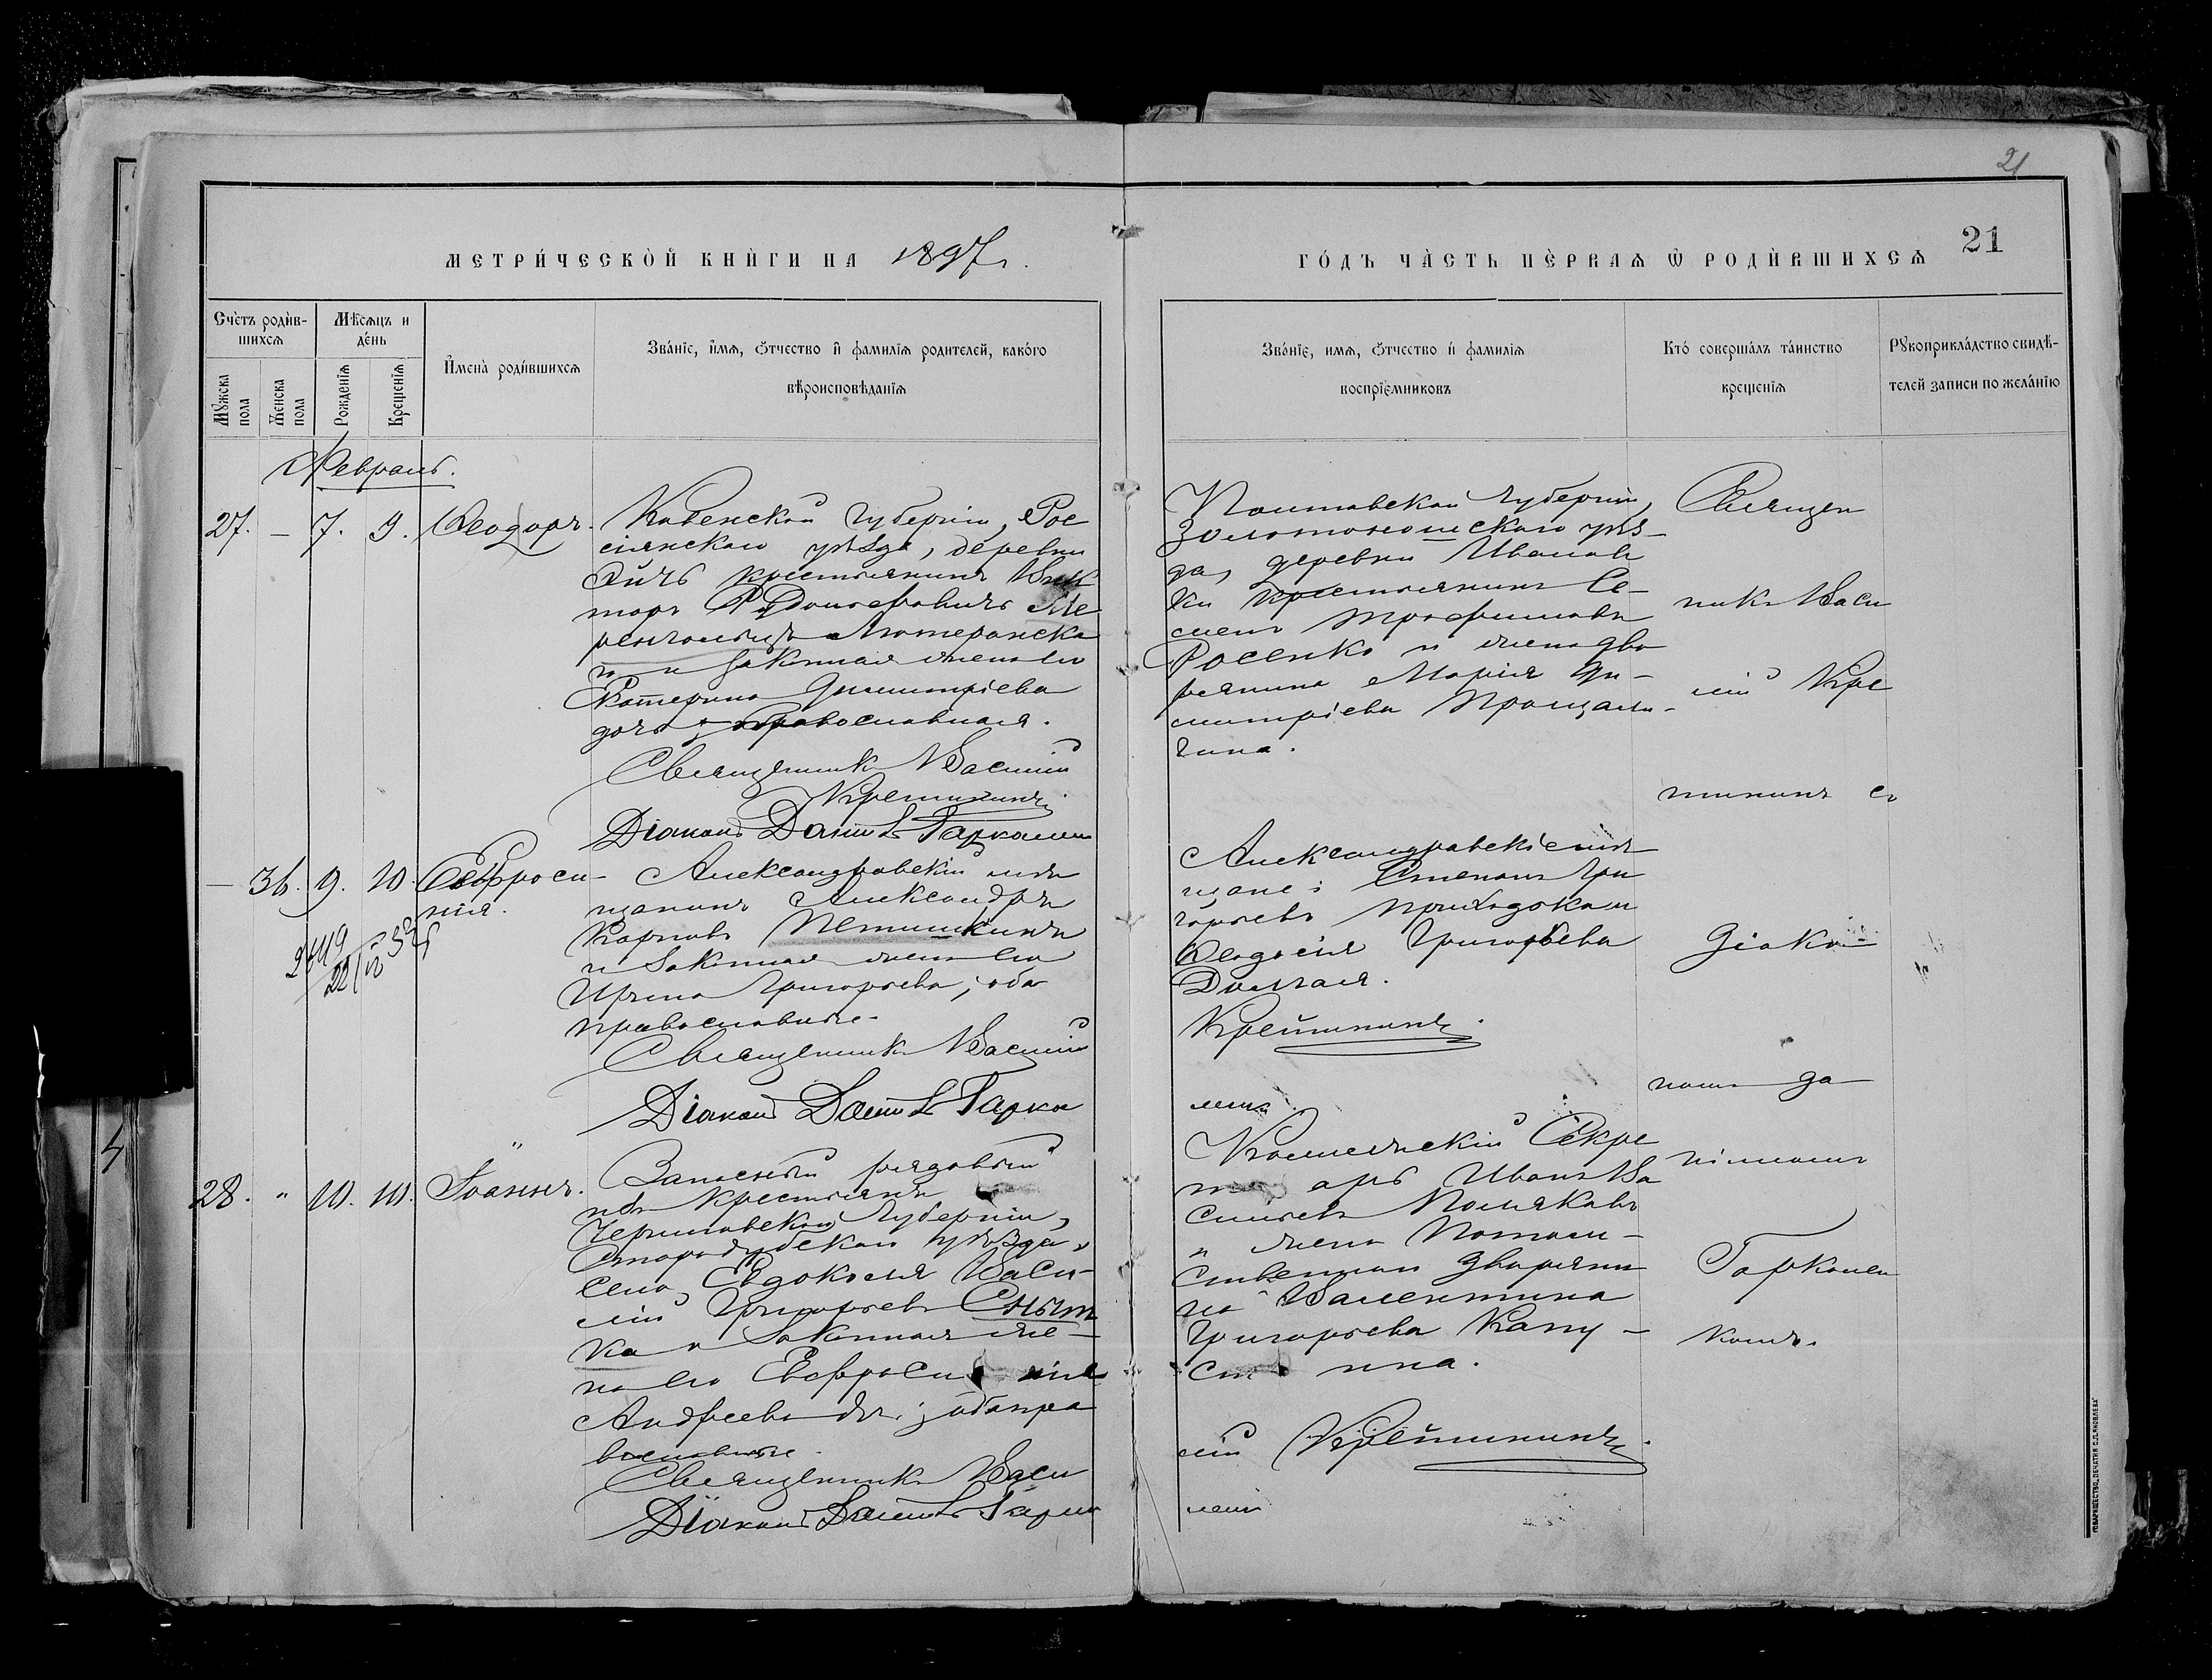 21
МЕТРИ́ЧЕСКОЙ КНИ́ГИ НА 1897 г.
ГО́ДЪ ЧА́СТЬ ПЕ́РВАѦ Ѿ РОДИ́ВШИХСѦ 21
Сче́тъ роди́в-
шихсѧ
Мѣ́сѧцъ и
де́нь
Мꙋ́жеска
пола
Же́нска
пола
Рожде́нїѧ
Креще́нїѧ
И҆мена̀ роди́вшихсѧ
Зва́нїе, и҆́мѧ, ѻ҆́тчество и҆ фами́лїѧ роди́телей, како́го
вѣроисповѣ́данїѧ
Зва́нїе, имѧ, ѻ҆́тчество и҆ фами́лїѧ
воспрїе́мниковъ
Кто́ соверша́лъ та́инство
креще́нїѧ
Рꙋкоприкла́дство свидѣ́-
телей за́писи по жела́нїю
Февраль.
27. — 7. 9. Ѳеодоръ.
Ковенской губерніи, Рос
сіянскаго уѣзда, деревни
крестьянинъ Вик
торъ Рудольфовичъ Ме
Лютеранска
го и законная жена его
Екатерина Димитріева
православная.
Священникъ Василій
Крейминъ
Діаконъ Даніилъ Гарколен
Полтавской губерніи,
Золотоношскаго уѣз-
да, деревни Иванов
ки крестьянинъ Се-
менъ Трофимовъ
Росенко и жена дво
рянина Марія Ди-
митріева Прощалы-
гина.
Священ
никъ Васи
лій Кре
— 36. 9. 10. Евфроси-
нія.
Александровскій мѣ
щанинъ Александръ
Карповъ Петишкинъ
и законная жена его
Ирина Григорьева; оба
православные.
Священникъ Василій
Діаконъ Даніилъ Гарко
Александровскіе мѣ
щане: Степанъ Гри
горьевъ Приходька и
Ѳеодосія Григорьева
Долгая.
ленко.
Діако-
номъ Да
ніиломъ
Гарколен
комъ.
28. " 10. 10. Іоаннъ.
Запасный рядовый
изъ крестьянъ
Черниговской губерніи,
Стародубскаго уѣзда,
села Евдоколья Васи-
лій Григорьевъ Сныт
ка и законная же-
на его Евфросинія
Андреева; оба пра
вославные.
Священникъ Васи
Діаконъ Даніилъ Гарко
Коллежскій Секре
тарь Иванъ Ва
сильевъ Поляковъ
и жена Потом-
ственнаго дворяни
на Валентина
Григорьева Капу-
стина.
лій
ленко
ТОВАРИЩЕСТВО „ПЕЧАТНЯ С.П.ЯКОВЛЕВА“